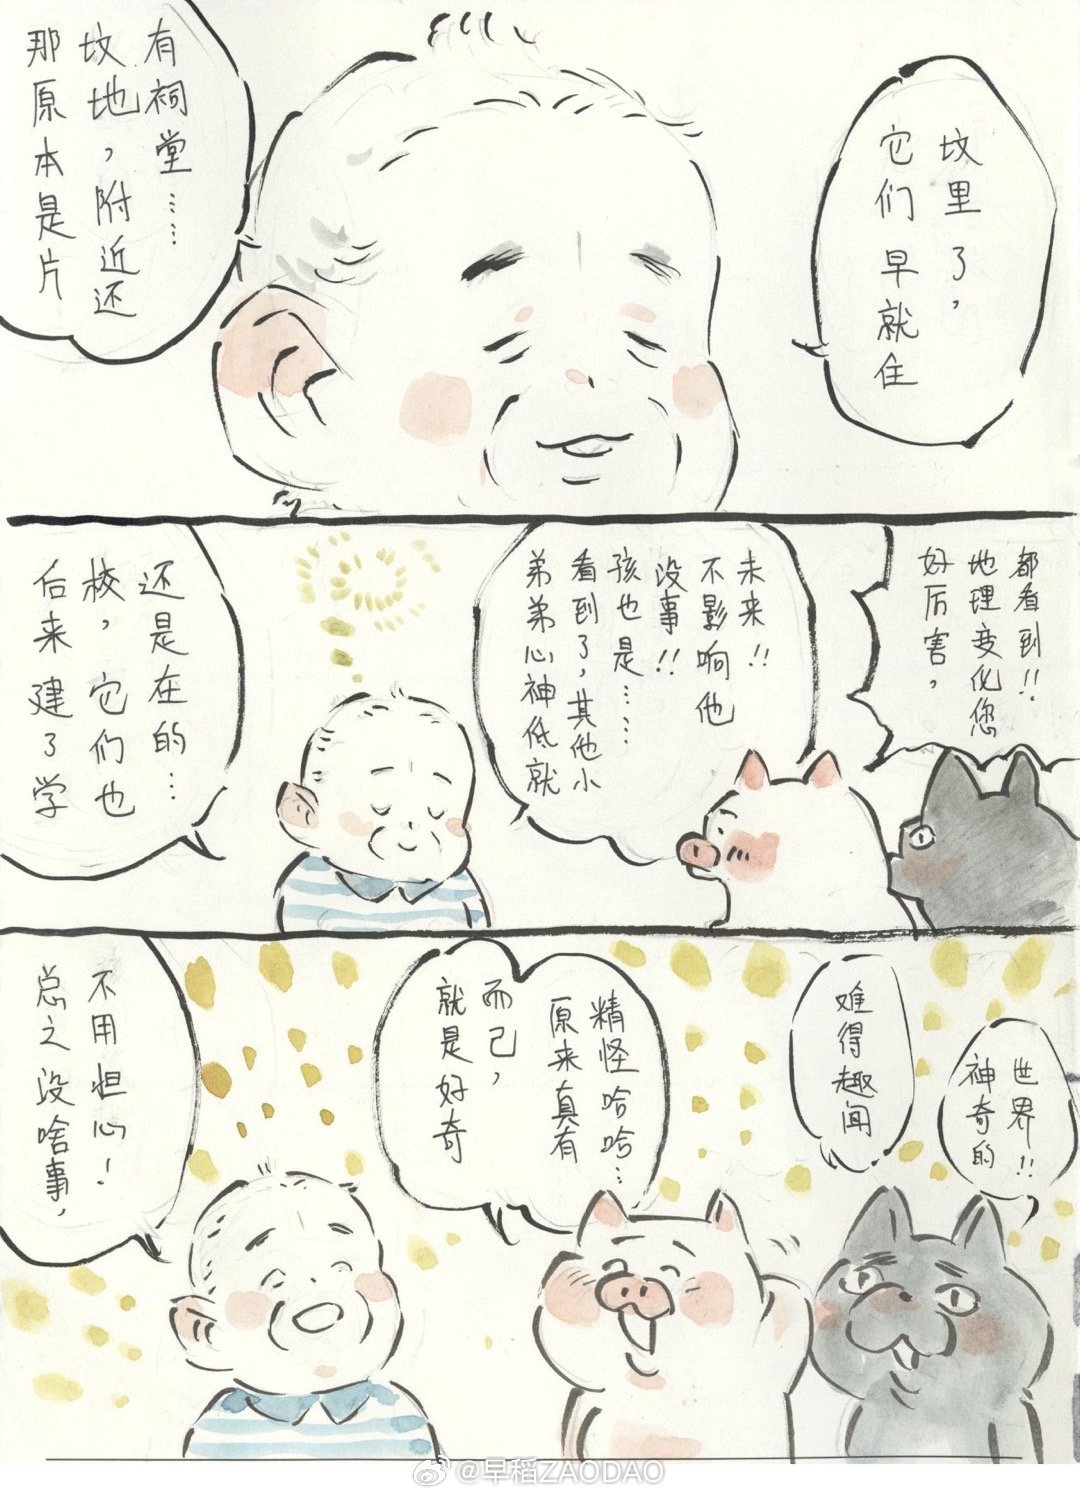 那原本是片
坟地，附近还
有祠堂……
它们早就住
坟里了，
后来建了学
校，它们也
还是在的…
弟弟心神低就
看到了，其他小
孩也是……
没事!!
不影响他
未来!!
好厉害，
地理变化您
都看到!!
总之没啥事，
不用担心！
就是好奇
而己，
原来真有
精怪哈哈…
难得趣闻
神奇的
世界!!
@早稻ZAODAO